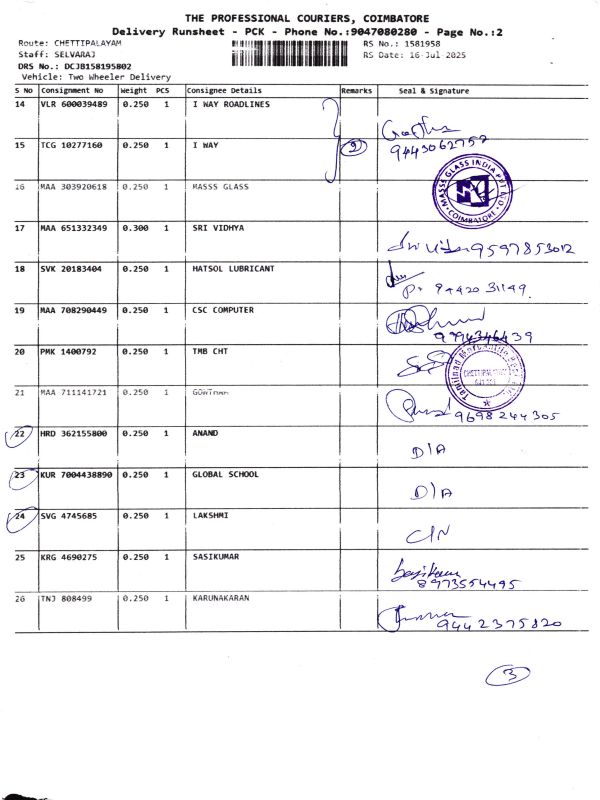 THE PROFESSIONAL COURIERS, COIMBATORE
Delivery Runsheet - PCK - Phone No.:9047080280 - Page No.:2
Route: CHETTIPALAYAM RS No.: 1581958
Staff: SELVARAJ RS Date: 16-Jul-2025
DRS No.: DCJB158195802
Vehicle: Two Wheeler Delivery
S No Consignment No Weight PCS Consignee Details Remarks Seal & Signature
14 VLR 600039489 0.250 1 I WAY ROADLINES
15 TCG 10277160 0.250 1 I WAY 2 9443062757
16 MAA 303920618 0.250 1 MASSS GLASS MASSS GLASS INDIA PVT LTD COIMBATORE
17 MAA 651332349 0.300 1 SRI VIDHYA 9597853012
18 SVK 20183404 0.250 1 HATSOL LUBRICANT 94420 31149
19 MAA 708290449 0.250 1 CSC COMPUTER
20 PMK 1400792 0.250 1 TMB CHT CHETTIPALAYAM
21 MAA 711141721 0.250 1 GOWTHAM 9698244305
22 HRD 362155800 0.250 1 ANAND D/A
23 KUR 7004438890 0.250 1 GLOBAL SCHOOL D/A
24 SVG 4745685 0.250 1 LAKSHMI C/N
25 KRG 4690275 0.250 1 SASIKUMAR Sasikumar
8973554495
26 TNJ 808499 0.250 1 KARUNAKARAN
9442375820
3